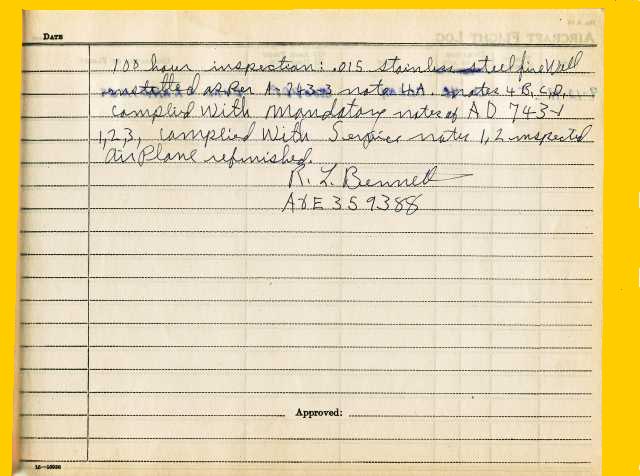 DATE
100 hour inspection: .015 stainless steel fire Wall
installed as per A-743-3 note 4A. notes 4 B, C, D,
complied With mandatory notes of AD 743-1
1,2,3, complied With Service notes 1,2 inspected
air Plane refinished.
R. L. Bennett
A&E 359388
Approved: